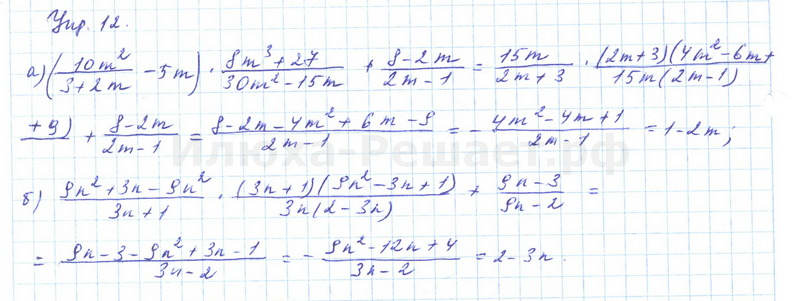 Упр. 12.
а) (10m²/(3+2m) − 5m) · (8m³+27)/(30m²−15m) + (8−2m)/(2m−1) = 15m/(2m+3) · (2m+3)(4m²−6m+
+9)/15m(2m−1) + (8−2m)/(2m−1) = (8−2m−4m²+6m−9)/(2m−1) = −(4m²−4m+1)/(2m−1) = 1−2m;
Илюха-Решает.рф
б) (9n²+3n−9n²)/(3n+1) · (3n+1)(9n²−3n+1)/3n(2−3n) + (9n−3)/(9n−2) =
= (9n−3−9n²+3n−1)/(3n−2) = −(9n²−12n+4)/(3n−2) = 2−3n.